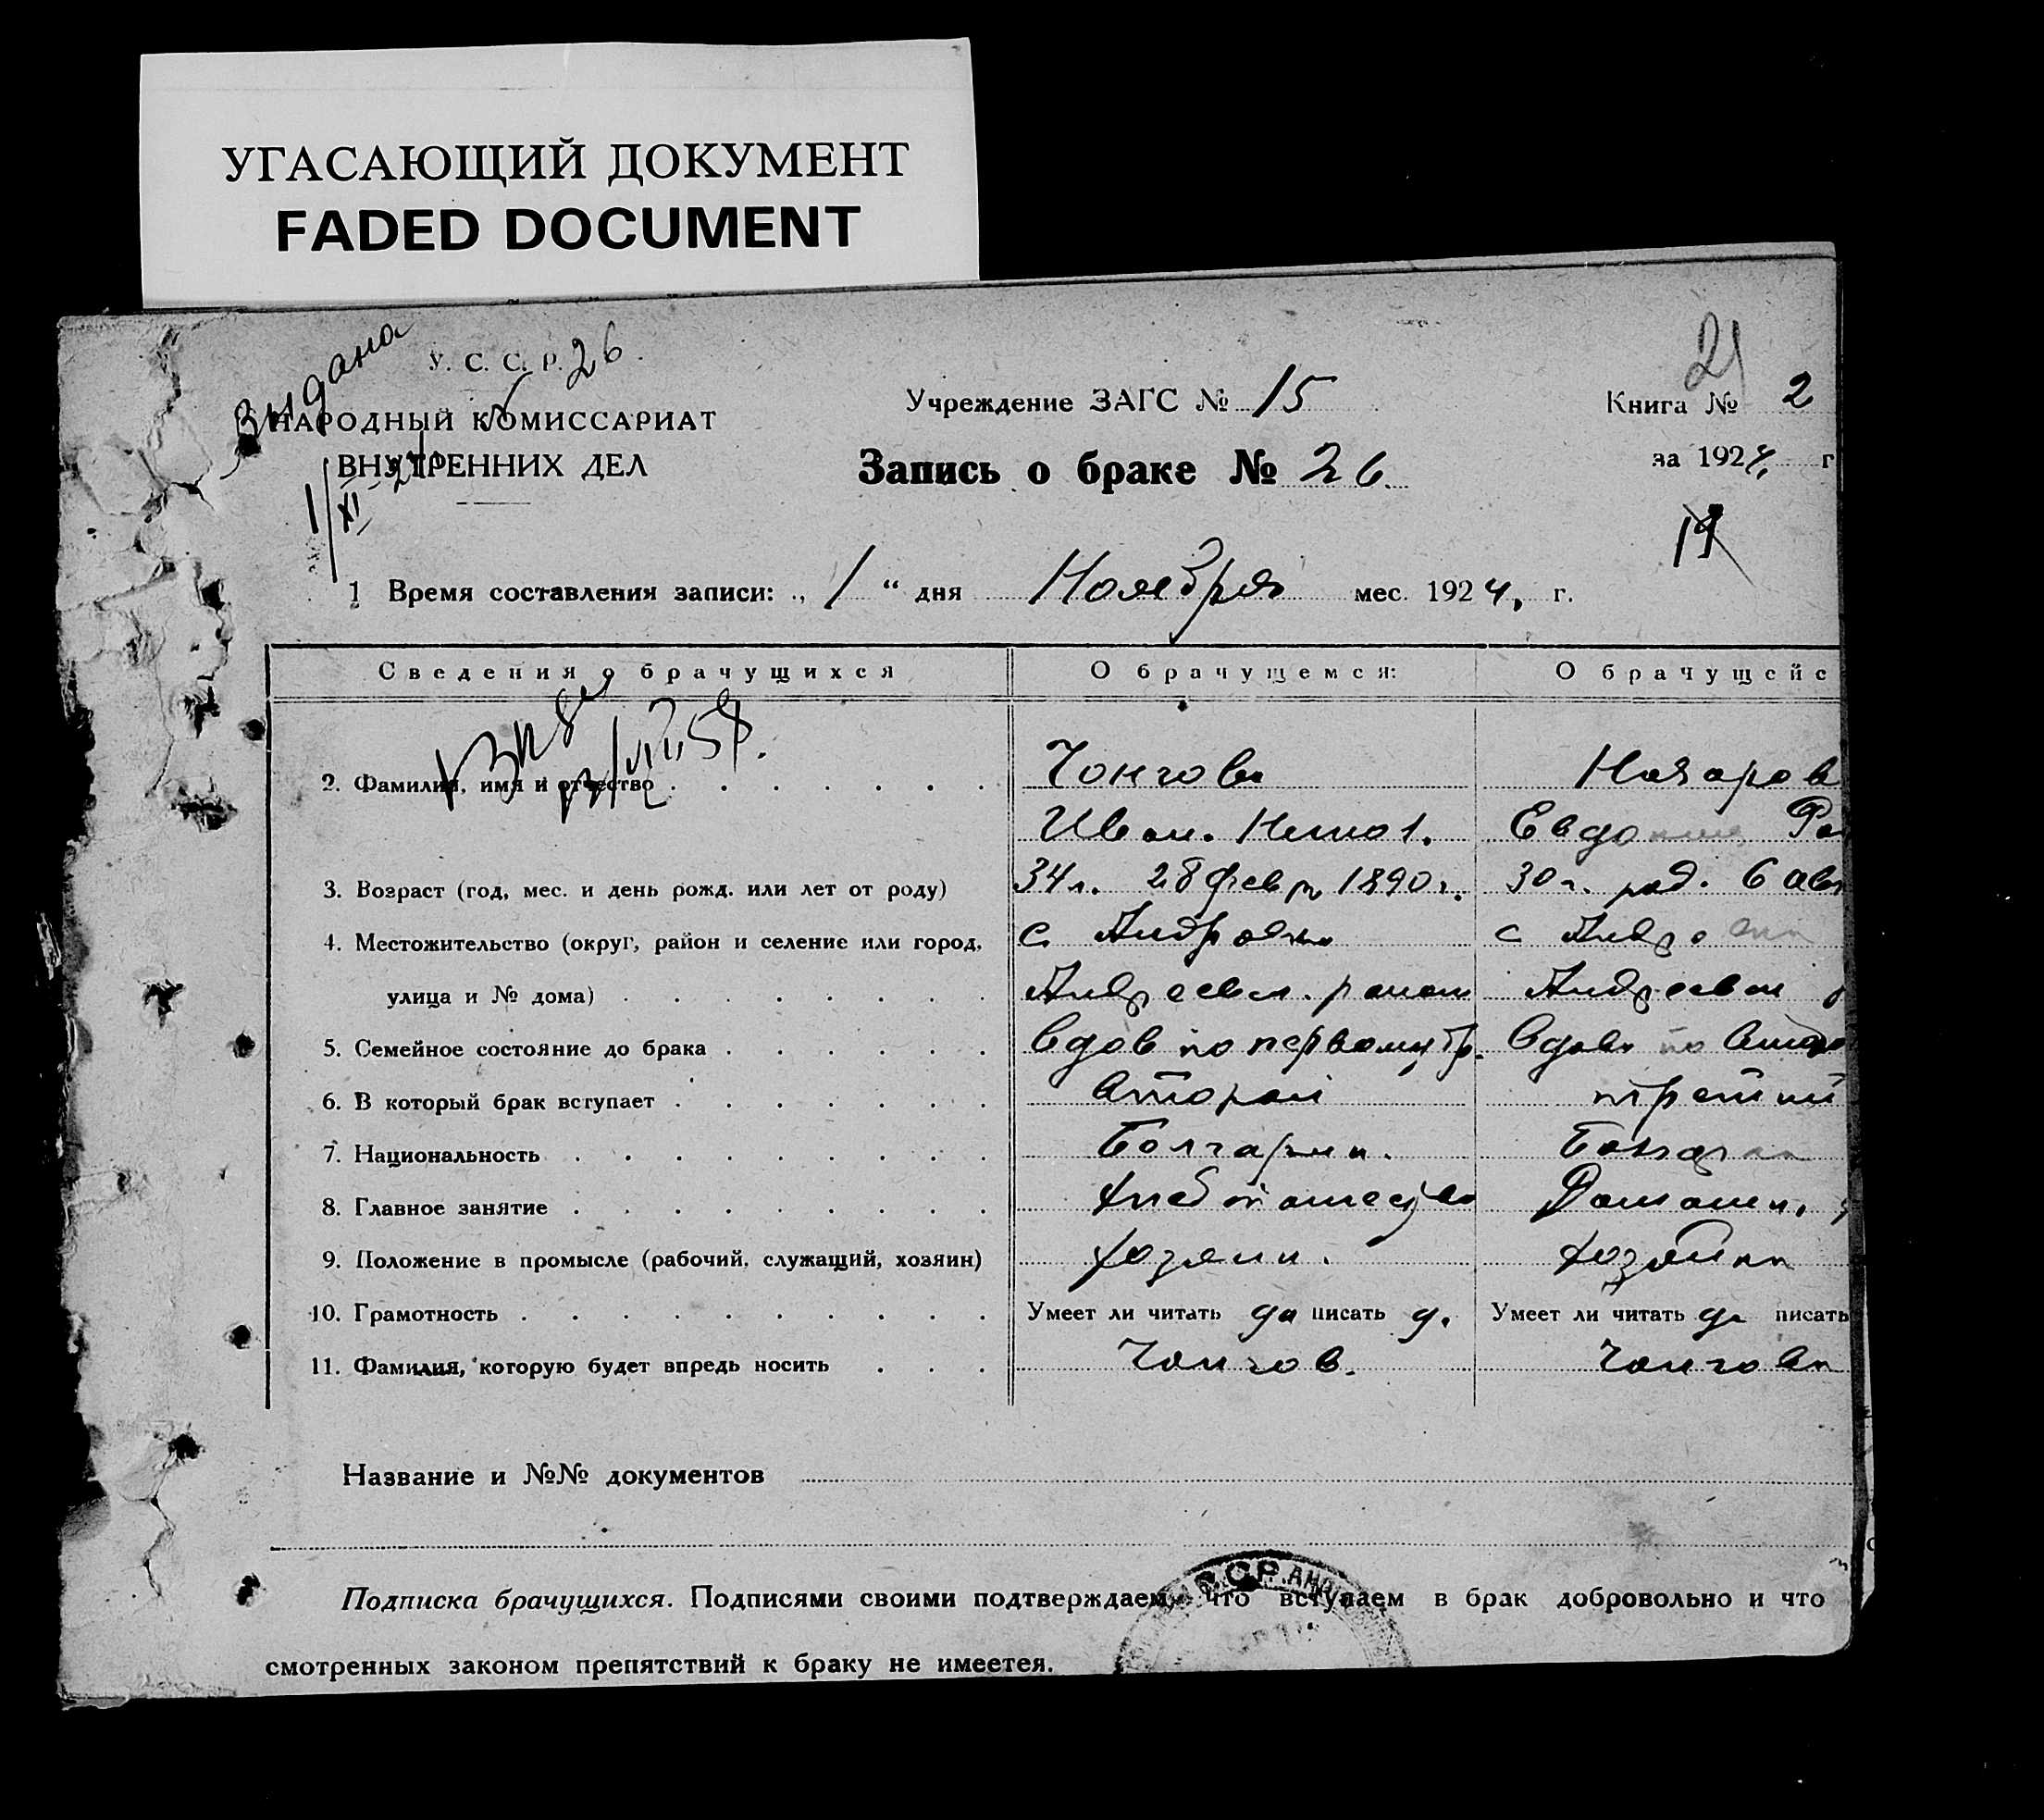 УГАСАЮЩИЙ ДОКУМЕНТ
FADED DOCUMENT
У. С. С. Р. 26
НАРОДНЫЙ КОМИССАРИАТ
ВНУТРЕННИХ ДЕЛ
Учреждение ЗАГС № 15
Запись о браке № 26.
21
Книга № 2
за 1924 г
1 Время составления записи: „ 1 “ дня Ноября мес. 1924, г.
Сведения о брачущихся О брачущемся: О брачущейс
2. Фамилия, имя и отчество
Иван.
3. Возраст (год, мес. и день рожд. или лет от роду) 34 л. 28 февр 1890 г. 30 г. род. 6 авг
4. Местожительство (округ, район и селение или город, с. с
улица и № дома) Андреевск. район Андреевск
5. Семейное состояние до брака вдов по первому бр. вдова по
6. В который брак вступает второй третий
7. Национальность Болгарин.
8. Главное занятие Домашн.
9. Положение в промысле (рабочий, служащий, хозяин) хозяин. хозяйка
10. Грамотность Умеет ли читать да писать д. Умеет ли читать да писать
11. Фамилия, которую будет впредь носить Чонгов. Чонгова
Название и №№ документов
Подписка брачущихся. Подписями своими подтверждаем, что вступаем в брак добровольно и что
смотренных законом препятствий к браку не имеетея.